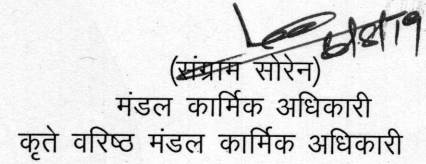 6/8/19
(संग्राम सोरेन)
मंडल कार्मिक अधिकारी
कृते वरिष्ठ मंडल कार्मिक अधिकारी